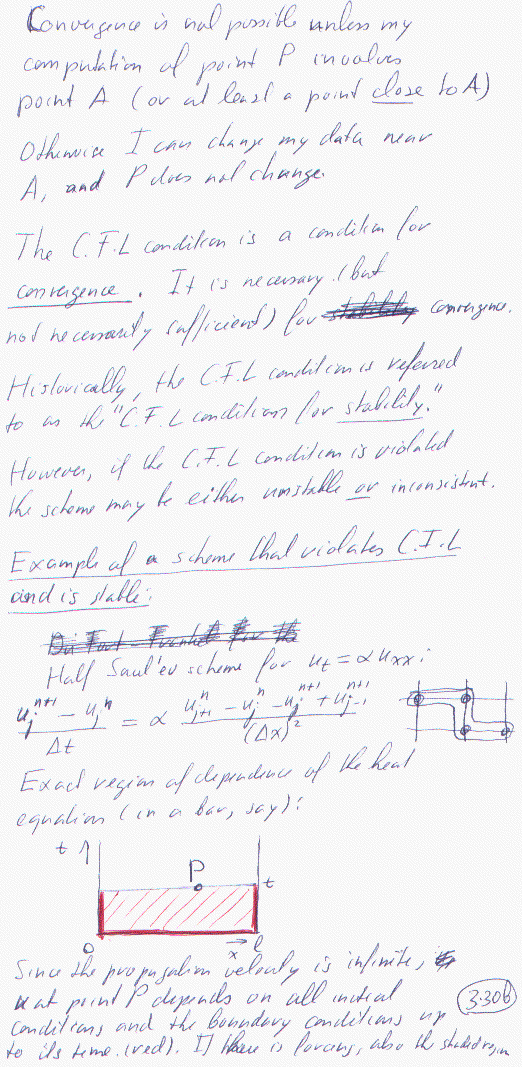 Convergence is not possible unless my
computation of point P involves
point A (or at least a point close to A)
Otherwise I can change my data near
A, and P does not change.
The C.F.L condition is a condition for
convergence. It is necessary (but
not necessarily sufficient) for stability convergence.
Historically, the C.F.L condition is referred
to as the "C.F.L condition for stability."
However, if the C.F.L condition is violated
the scheme may be either unstable or inconsistent.
Example of a scheme that violates C.F.L
and is stable:
Du Fort-Frankel for the
Half Saul'ev scheme for u_t = α u_xx:
(u_j^{n+1} - u_j^n) / Δt = α (u_{j+1}^n - u_j^n - u_j^{n+1} + u_{j-1}^{n+1}) / (Δx)^2
Exact region of dependence of the heat
equation (in a bar, say):
t
P
t
0 x l
Since the propagation velocity is infinite,
u at point P depends on all initial
3.30b
conditions and the boundary conditions up
to its time (red). If there is forcing, also the shaded region